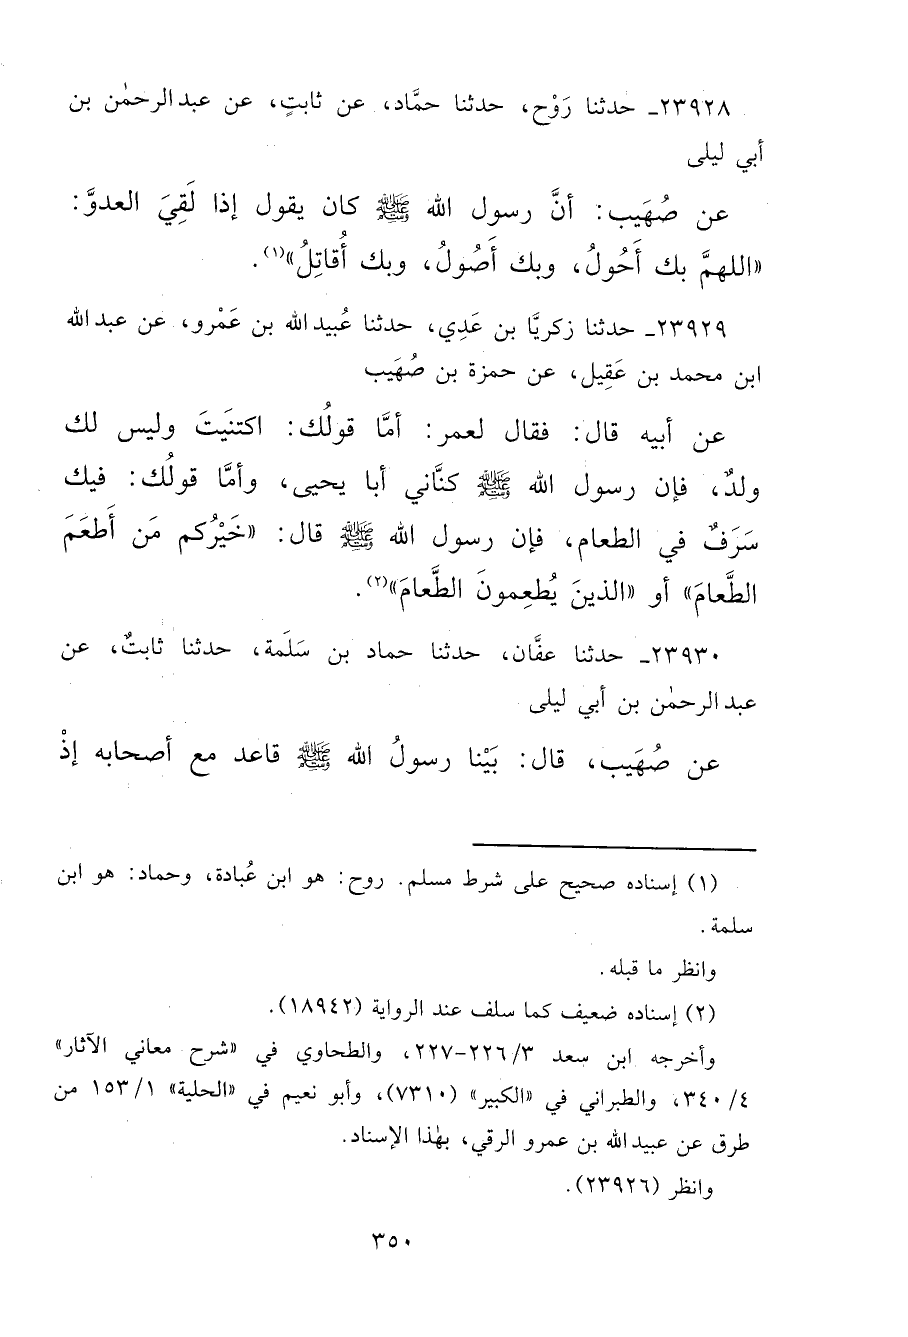 ٢٣٩٢٨ـ حدثنا رَوْح، حدثنا حمَّاد، عن ثابتٍ، عن عبدالرحمٰن بن
أبي ليلى
عن صُهَيب: أنَّ رسول الله ﷺ كان يقول إذا لَقِيَ العدوَّ:
«اللهمَّ بك أَحُولُ، وبك أَصُولُ، وبك أُقاتِلُ»(١).
٢٣٩٢٩ـ حدثنا زكريَّا بن عَدِي، حدثنا عُبيدالله بن عَمْرو، عن عبدالله
ابن محمد بن عَقِيل، عن حمزة بن صُهَيب
عن أبيه قال: فقال لعمر: أمَّا قولُك: اكتنَيتَ وليس لك
ولدٌ، فإن رسول الله ﷺ كنَّاني أبا يحيى، وأمَّا قولُك: فيك
سَرَفٌ في الطعام، فإن رسول الله ﷺ قال: «خَيْرُكم مَن أَطعَمَ
الطَّعامَ» أو «الذينَ يُطعِمونَ الطَّعامَ»(٢).
٢٣٩٣٠ـ حدثنا عفَّان، حدثنا حماد بن سَلَمة، حدثنا ثابتٌ، عن
عبدالرحمٰن بن أبي ليلى
عن صُهَيب، قال: بَيْنا رسولُ الله ﷺ قاعد مع أصحابه إذْ
(١) إسناده صحيح على شرط مسلم. روح: هو ابن عُبادة، وحماد: هو ابن
سلمة.
وانظر ما قبله.
(٢) إسناده ضعيف كما سلف عند الرواية (١٨٩٤٢).
وأخرجه ابن سعد ٢٢٦/٣-٢٢٧، والطحاوي في «شرح معاني الآثار»
٣٤٠/٤، والطبراني في «الكبير» (٧٣١٠)، وأبو نعيم في «الحلية» ١٥٣/١ من
طرق عن عبيدالله بن عمرو الرقي، بهٰذا الإسناد.
وانظر (٢٣٩٢٦).
٣٥٠